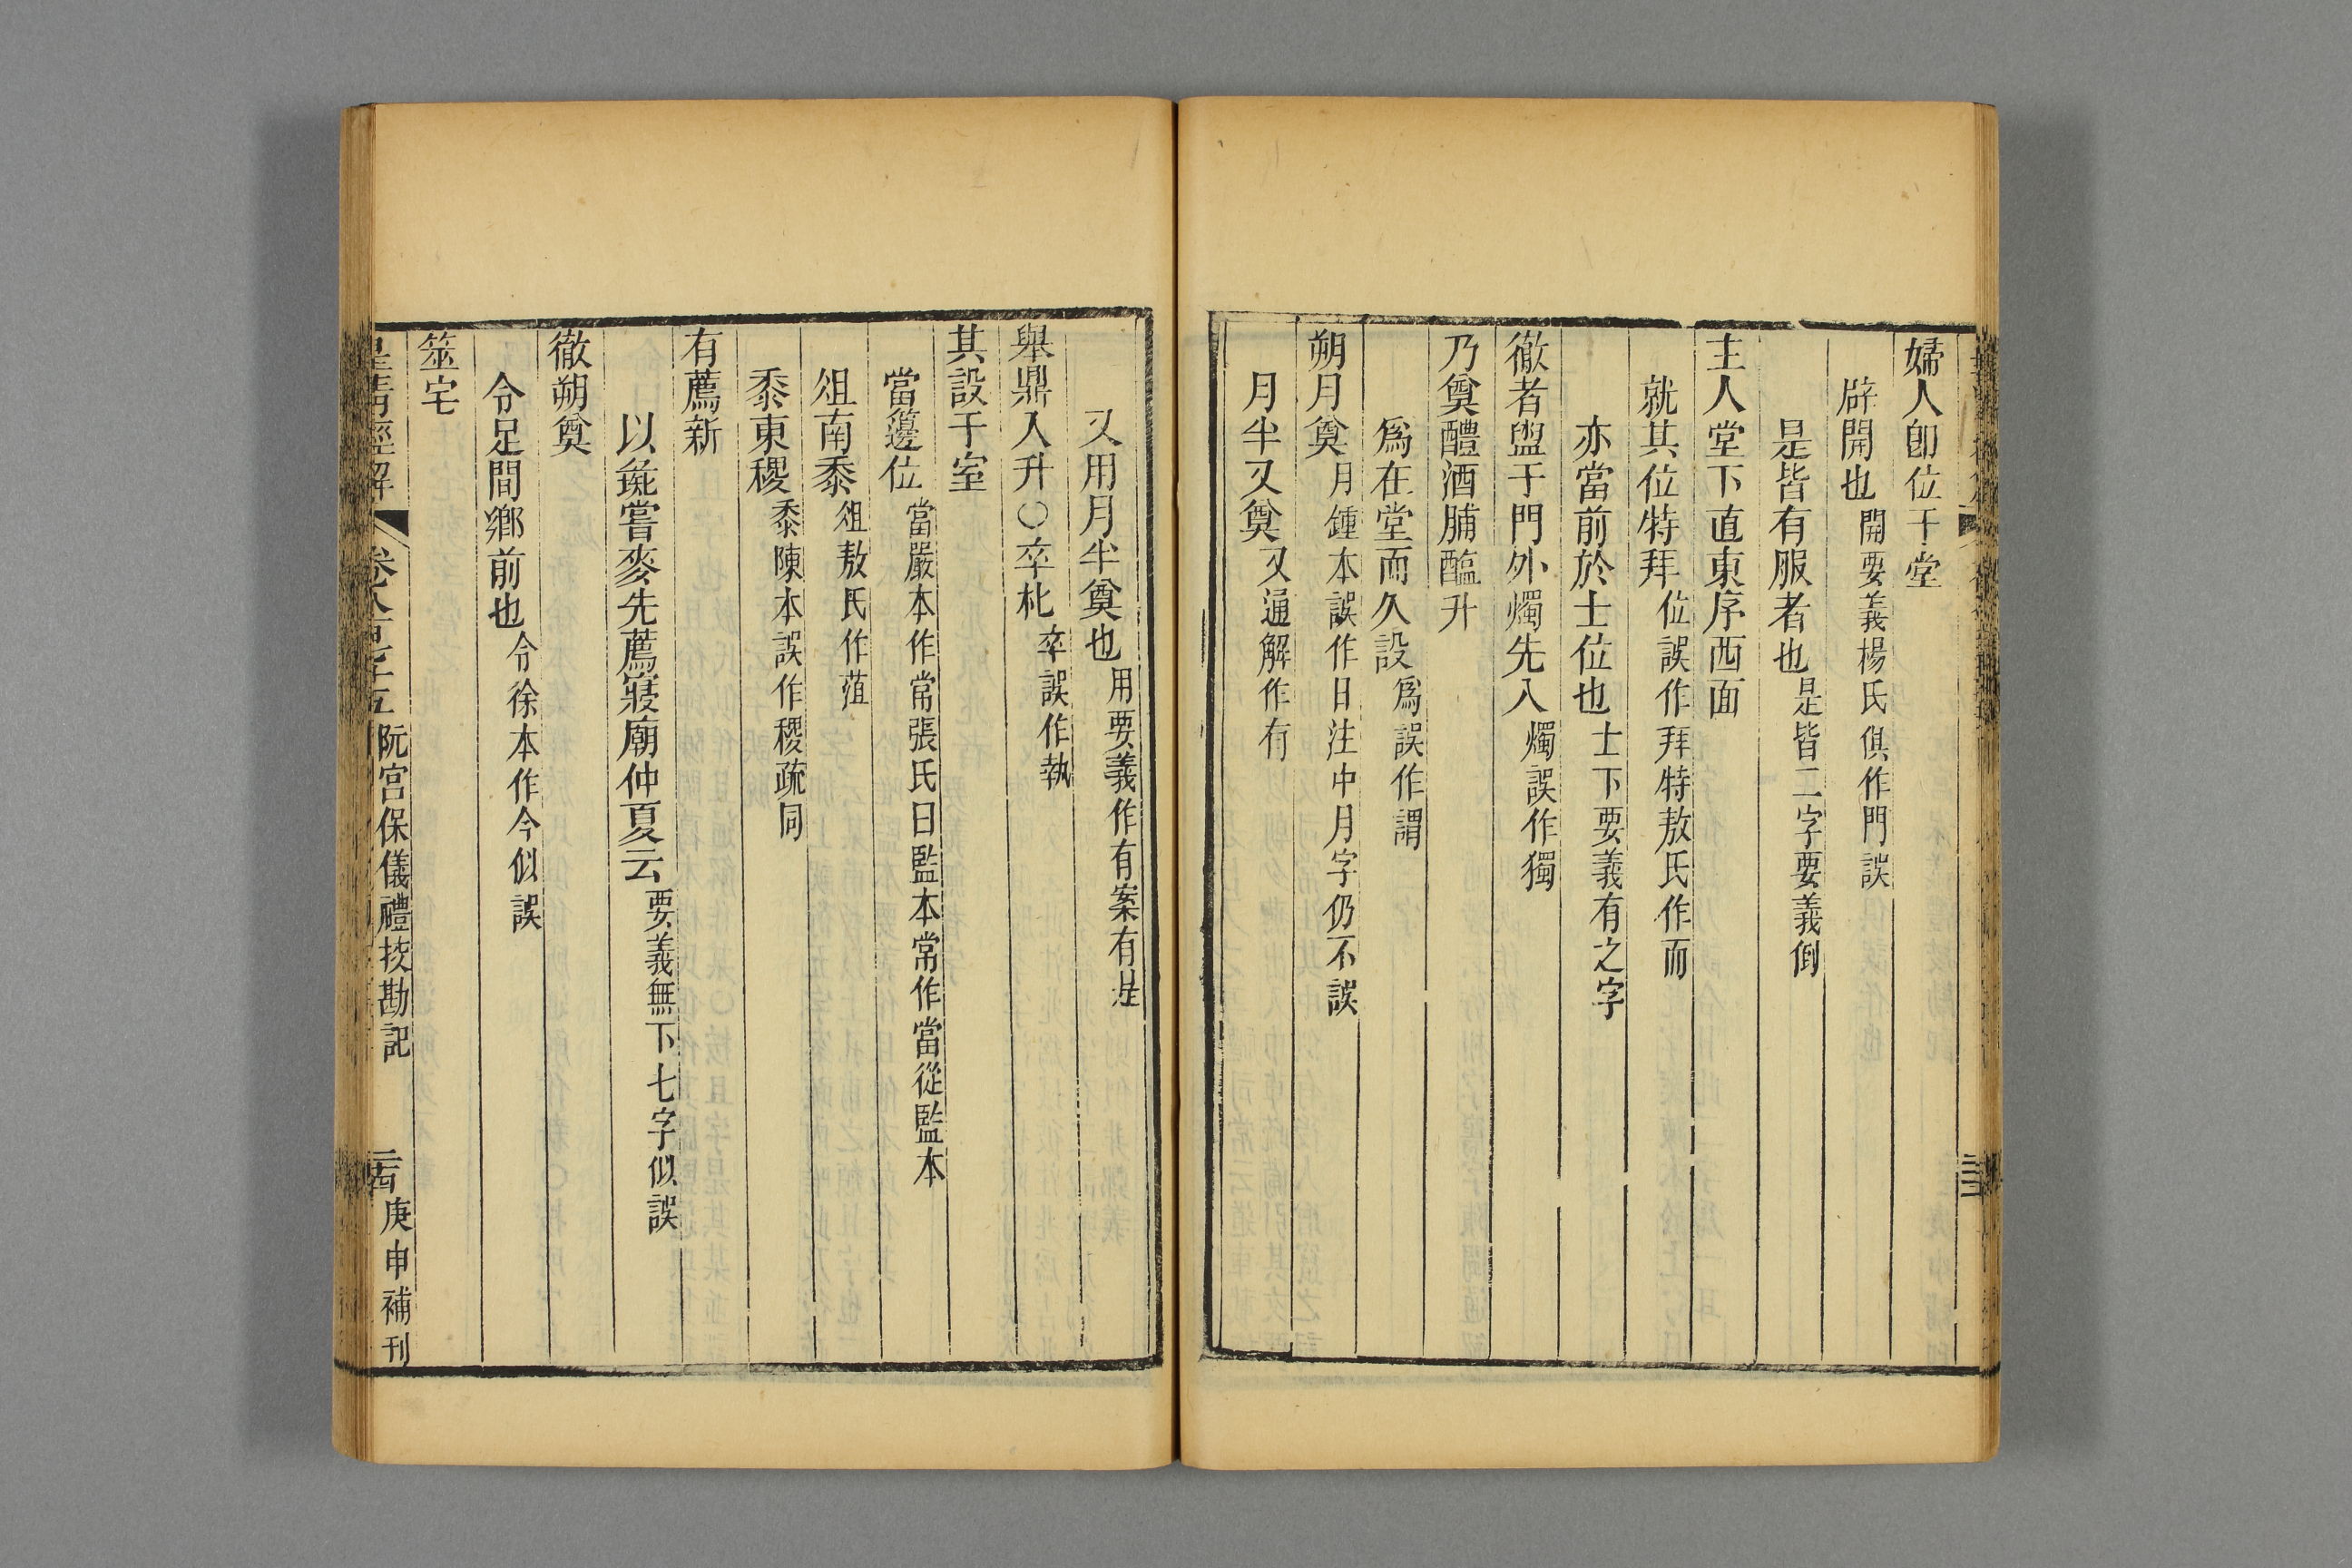 婦人卽位于堂
辟開也開要義楊氏俱作門誤
是皆有服者也是皆二字要義倒
主人堂下直東序西面
就其位特拜位誤作拜特敖氏作而
亦當前於士位也士下要義有之字
徹者盥于門外燭先入燭誤作獨
乃奠醴酒脯醢升
爲在堂而久設爲誤作謂
朔月奠月鍾本誤作日注中月字仍不誤
月半又奠又通解作有
又用月半奠也用要義作有案有是
舉鼎入升○卒朼卒誤作執
其設于室
當籩位當嚴本作常張氏曰監本常作當從監本
俎南黍俎敖氏作菹
黍東稷黍陳本誤作稷疏同
有薦新
以彘嘗麥先薦寢廟仲夏云要義無下七字似誤
徹朔奠
令足間鄉前也令徐本作今似誤
筮宅
皇淸經解 卷八百六十五 阮宮保儀禮挍勘記 庚申補刊